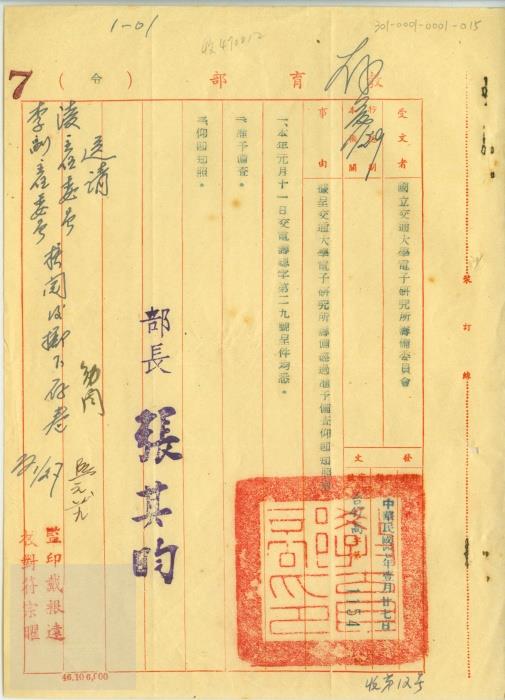 1-01
301-0001-0001-015
收470012
7
教育部（令）
受文者
國立交通大學電子研究所籌備委員會
事由
據呈交通大學電子研究所籌備經過准予備查仰即知照
發文
中華民國47年壹月廿七日
1154
一、本年元月十一日交電籌總字第二九號呈件均悉。
二、准予備查。
三、仰即知照。
部長 張其昀
送請
凌主任委員
李副主任委員
監印戴報遠
校對符宗曜
裝訂線
46.10 6,000
收第12号